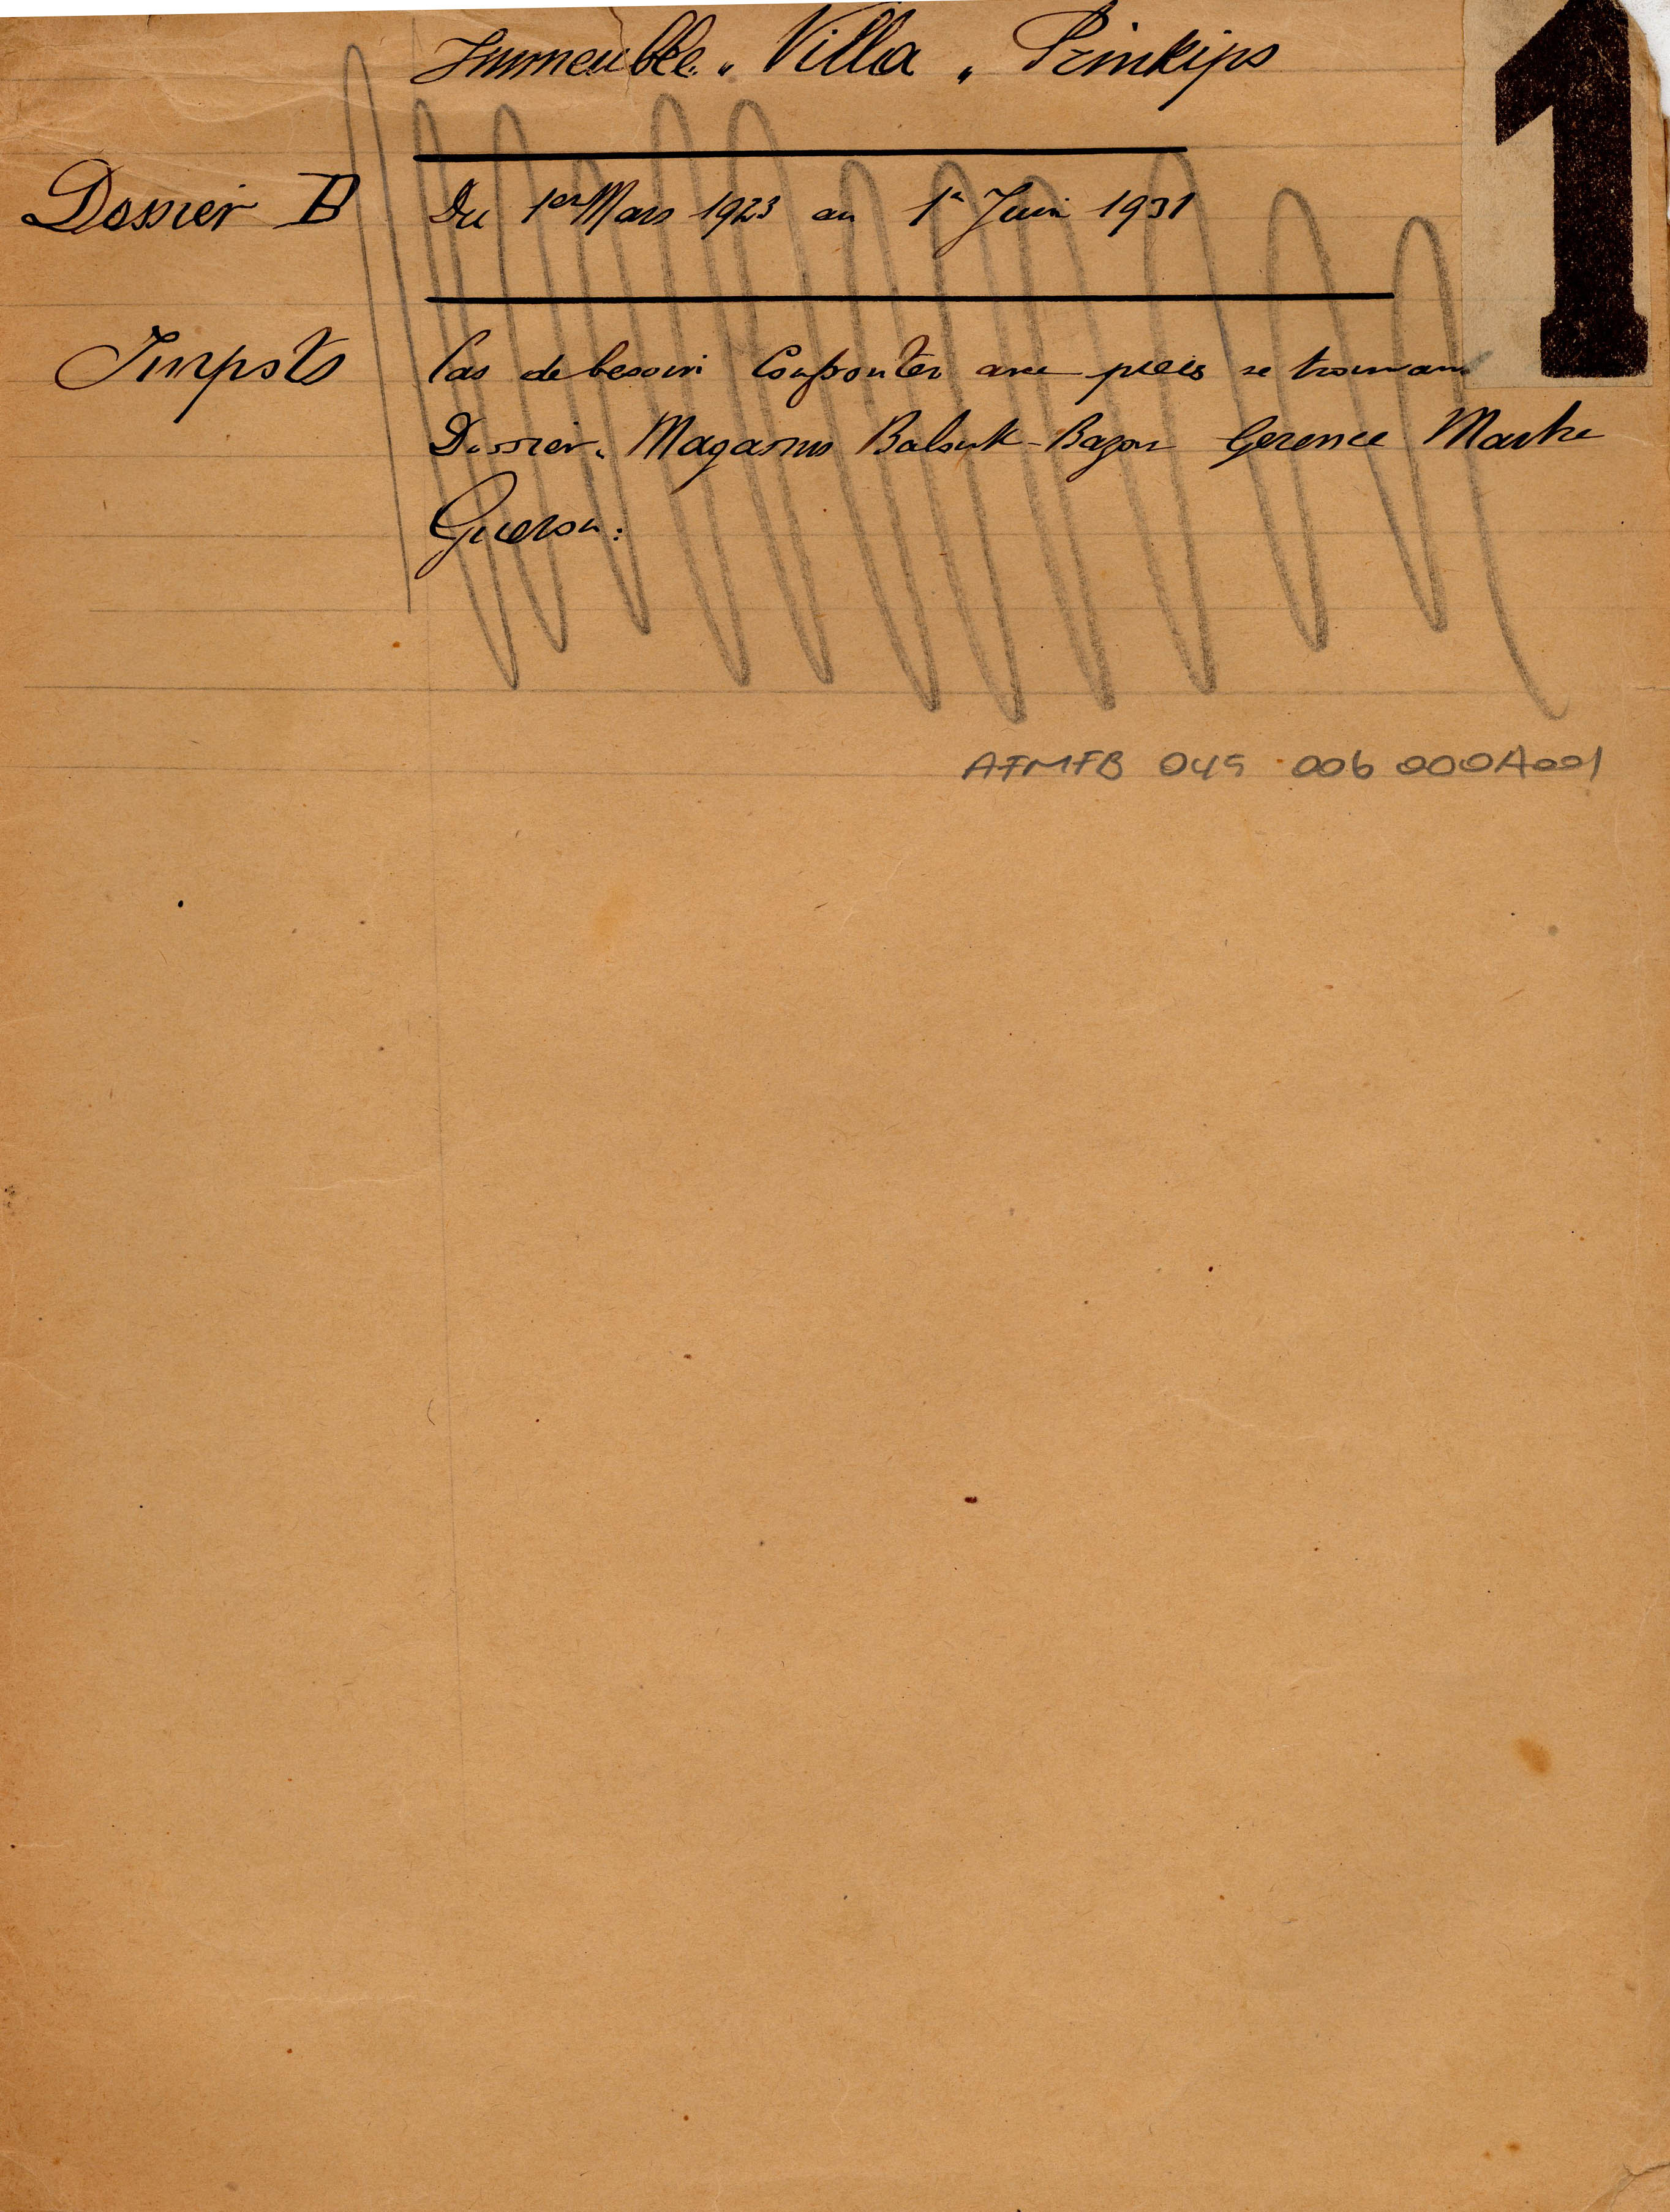 Immeuble "Villa" Prinkipo
1
Dossier B Du 1er Mars 1923 au 1er Juin 1931
Impots Cas de besoin Confronter avec pieces se trouvant
Dossier. Magasins Balouk-Bazar Gerence Maitre
Gueron:
AFMFB 045 006 000A001